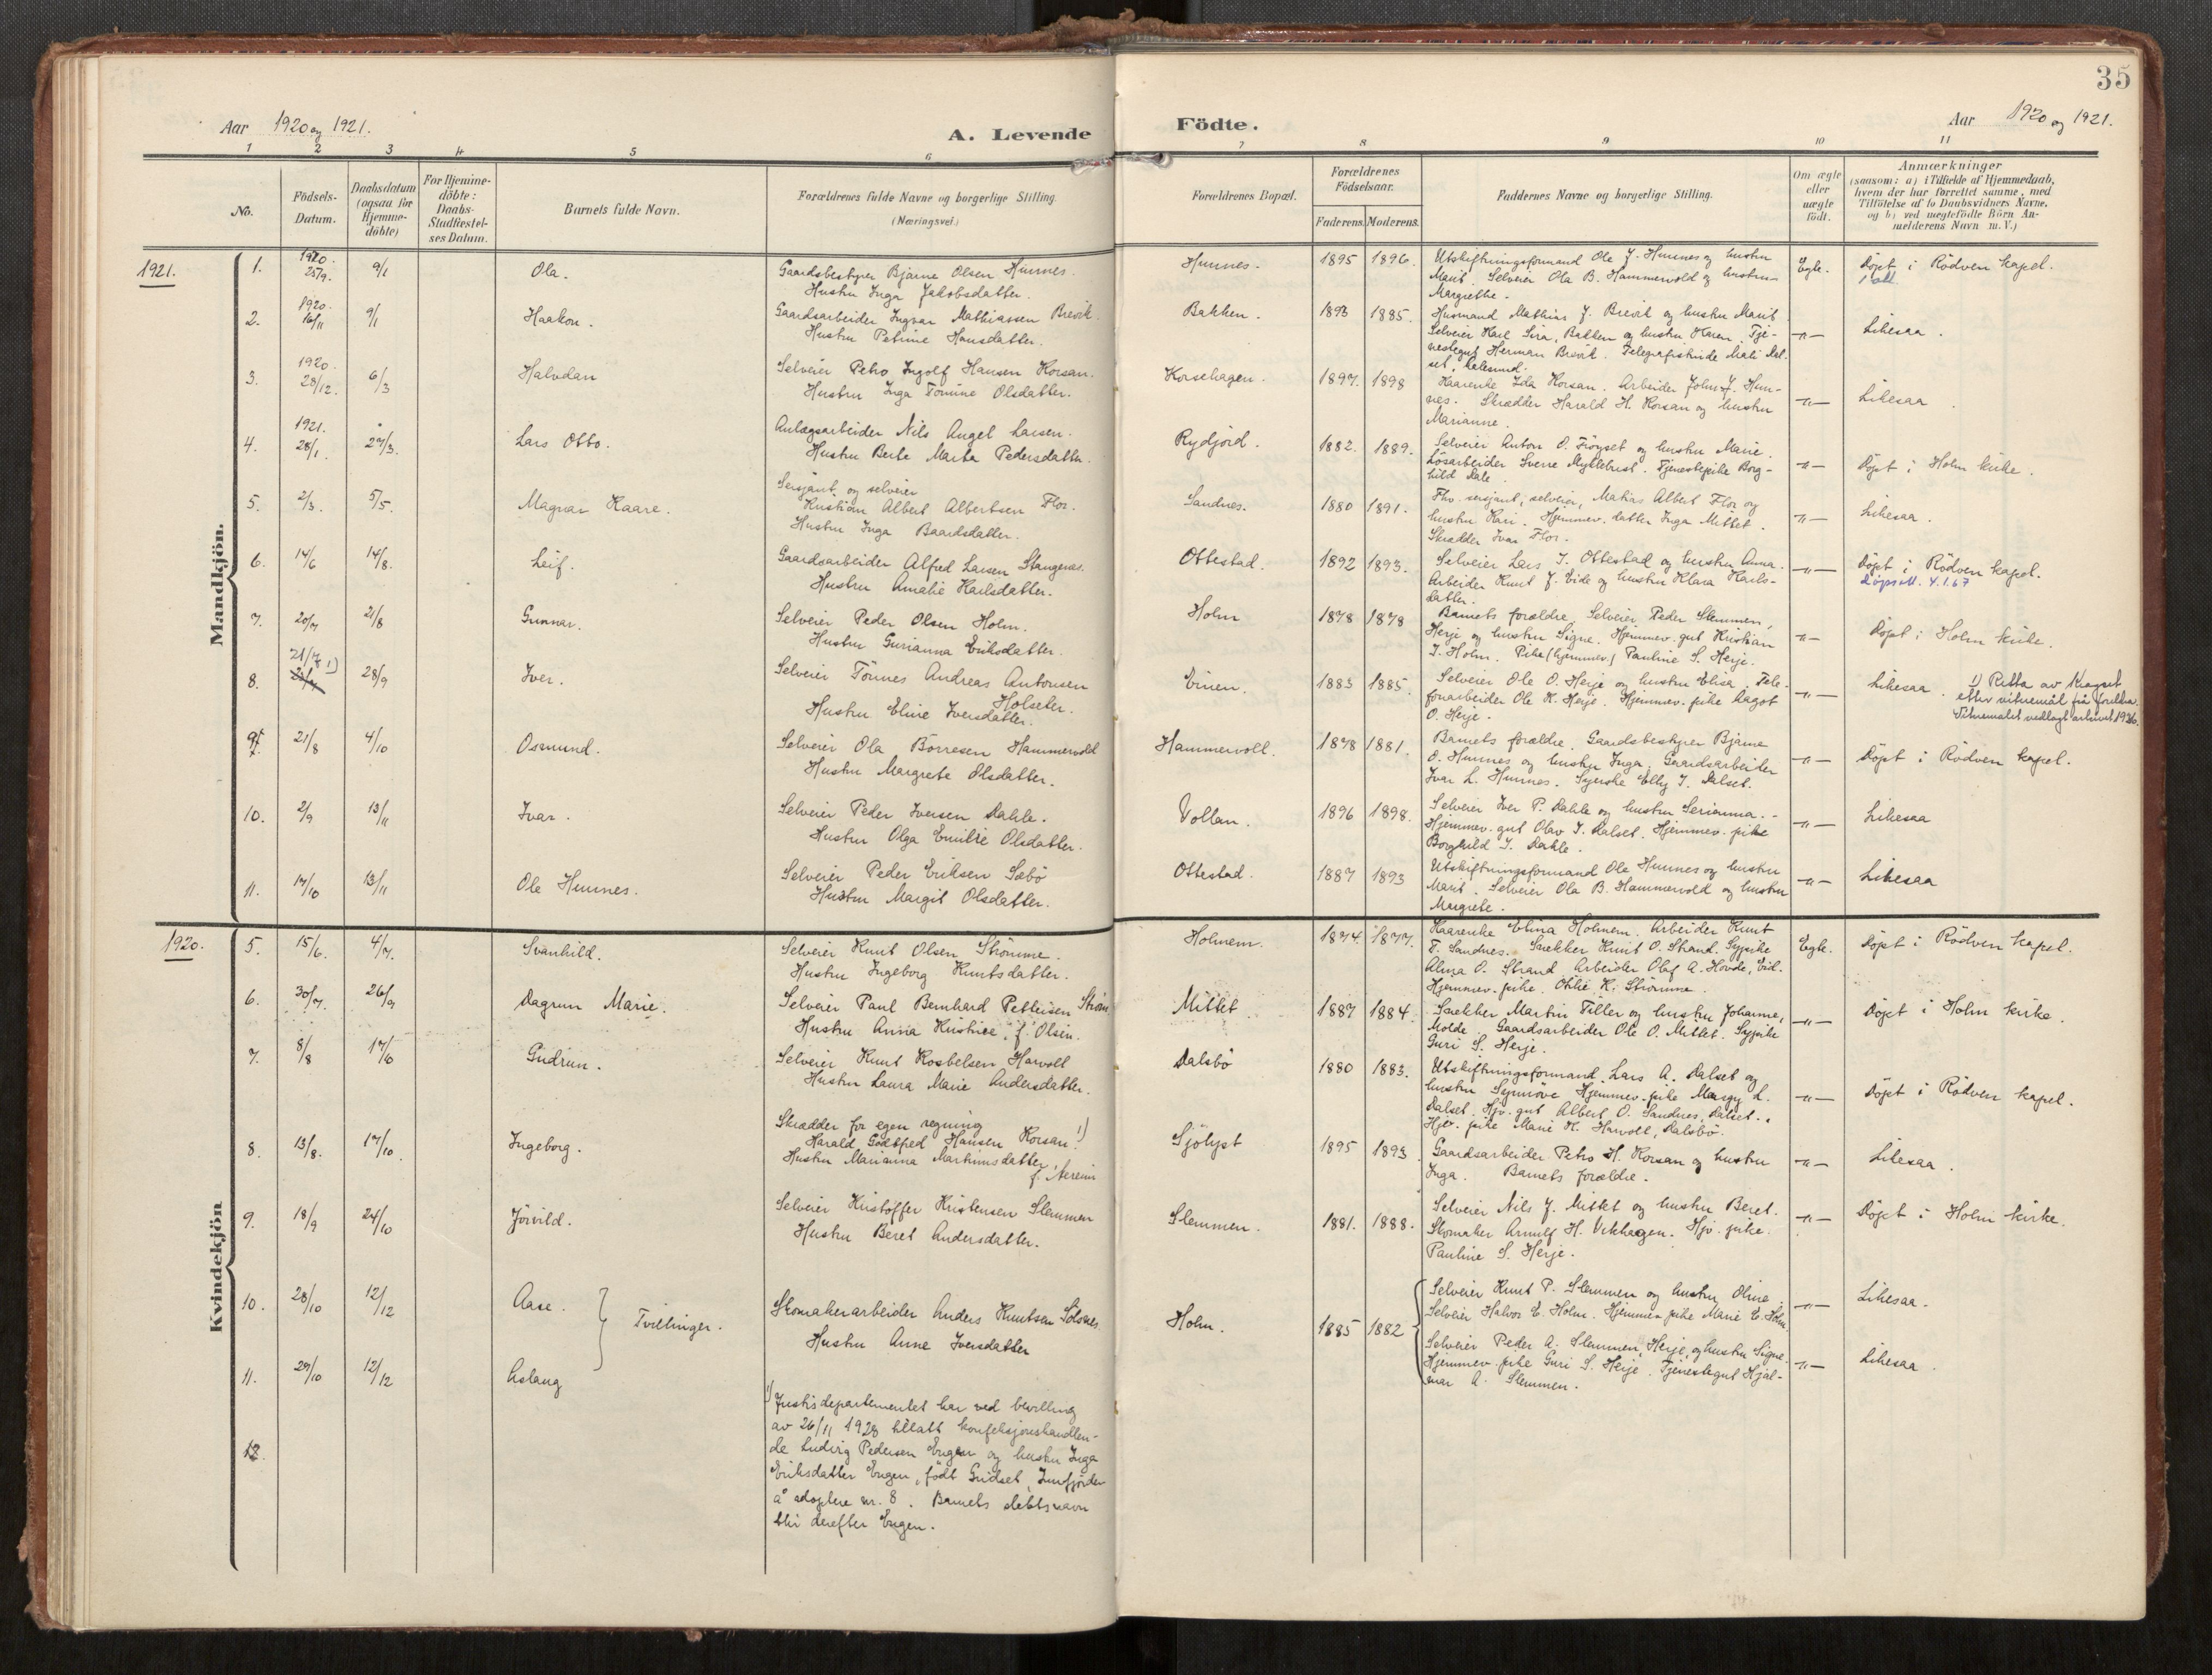 35
Aar 1920 og 1921.
A. Levende
Födte.
Aar 1920 og 1921.
1 2 3 4 5 6
7 8 9 10 11
No.
Födsels-
Datum.
Daabsdatum
(ogsaa for
Hjemme-
döbte)
For Hjemme-
döbte:
Daabs-
Stadfæstel-
ses Datum.
Barnets fulde Navn.
Forældrenes fulde Navne og borgerlige Stilling.
(Næringsvei.)
Forældrenes Bopæl.
Forældrenes
Födselsaar.
Faderens. Moderens.
Faddernes Navne og borgerlige Stilling.
Om ægte
eller
uægte
födt.
Anmærkninger
(saasom: a) i Tilfælde af Hjemmedaab,
hvem der har forrettet samme, med
Tilföielse af to Daabsvidners Navne,
og b) ved uægtefödte Börn An-
melderens Navn m. V.)
1921.
Mandkjön.
1. 1920. 25/9. 9/1 Ola.
Gaardsbestyrer Bjarne Olsen Hunnes.
Hustru Inga Jakobsdatter.
Hunnes. 1895 1896.
Utskiftningsformand Ole J. Hunnes og hustru
Marit. Selveier Ola B. Hammervold og hustru
Margrethe.
Egte. Döpt i Rödven kapel.
2. 1920. 16/11 9/1 Haakon.
Gaardsarbeider Ingvar Mathiassen Brevik.
Hustru Petrine Hansdatter.
Bakken. 1893 1885.
Husmand Mathias J. Brevik og hustru Marit
Selveier Karl Sira, Bakken og hustru Karen. Tje-
nestegut Herman Brevik. Telegrafistinde Mali Dal-
set, Aalesund.
-"- Likesaa.
3. 1920. 28/12. 6/3 Halvdan
Selveier Petro Ingolf Hansen Korsan.
Hustru Inga Tomine Olsdatter.
Korsehagen. 1897. 1898
Haarenke Ida Korsan. Arbeider John J. Hun-
nes. Skrædder Harald H. Korsan og hustru
Marianne.
-"- Likesaa.
4. 1921. 28/1. 27/3. Lars Otto.
Anlægsarbeider Nils Angel Larsen.
Hustru Berte Marta Pedersdatter.
Rydjord. 1882. 1889.
Selveier Anton O. Fröyset og hustru Marie.
Lösarbeider Sverre Myklebust. Tjenestepike Borg-
hild Dale.
-"- Döpt i Holm kirke.
5. 2/3. 5/5. Magnar Kaare.
Sersjant og selveier
Kristian Albert Albertsen Flor.
Hustru Inga Baardsdatter.
Sandnes. 1880 1891.
Fhv. sersjant, selveier, Matias Albert Flor og
hustru Kari. Hjemmev. datter Inga Mittet.
Skrædder Ivar Flor.
-"- Likesaa.
6. 14/6 14/8. Leif.
Gaardsarbeider Alfred Larsen Stangenes.
Hustru Amalie Karlsdatter.
Ottestad. 1892 1893.
Selveier Lars J. Ottestad og hustru Anna.
Arbeider Knut J. Eide og hustru Klara Karls-
datter.
-"- Döpt i Rödven kapel.
Döpsatt. 4.1.67
7. 20/7 21/8 Gunnar.
Selveier Peder Olsen Holm.
Hustru Gurianna Eriksdatter.
Holm 1878 1878
Barnets forældre. Selveier Peder Slemmen,
Herje og hustru Signe. Hjemmev. gut Kristian
J. Holm. Pike (hjemmev.) Pauline S. Herje.
-"- Döpt i Holm kirke.
8. 21/7 1) 28/9 Iver.
Selveier Tönnes Andreas Antonsen
Holseter.
Hustru Eline Iversdatter.
Einen. 1883 1885.
Selveier Ole O. Herje og hustru Elisa. Tele-
fonarbeider Ole K. Herje. Hjemmev. pike Dagot
O. Herje.
-"- Likesaa. 1) Retta av
etter vitnemål frå foreldra.
Vitnemålet vedlagt arkivet 1936.
9. 21/8 4/10 Osmund.
Selveier Ola Börresen Hammervold
Hustru Margrete Olsdatter.
Hammervoll. 1878 1881.
Barnets forældre. Gaardsbestyrer Bjarne
O. Hunnes og hustru Inga. Gaardsarbeider
Ivar L. Hunnes. Syerske Elly J. Dalset.
-"- Döpt i Rödven kapel.
10. 2/9 13/11 Ivar.
Selveier Peder Iversen Dahle.
Hustru Olga Emilie Olsdatter.
Vollan. 1896 1898.
Selveier Iver P. Dahle og hustru Serianna.
Hjemmev. gut Olav J. Dalset. Hjemmev. pike
Borghild J. Dahle.
-"- Likesaa
11. 17/10 13/11 Ole Hunnes.
Selveier Peder Eriksen Sæbö
Hustru Margit Olsdatter.
Ottestad. 1887 1893
Utskiftningsformand Ole Hunnes og hustru
Marit. Selveier Ola B. Hammervold og hustru
Margrete.
-"- Likesaa
1920.
Kvindekjön
5. 15/6. 4/7. Svanhild.
Selveier Knut Olsen Strömme.
Hustru Ingeborg Knutsdatter.
Holmem. 1874. 1877.
Haarenke Elina Holmem. Arbeider Knut
F. Sandnes. Snekker Knut O. Strand. Sypike
Alma O. Strand. Arbeider Olaf A. Hovde, Eid.
Hjemmev. pike. Otilie K. Strömme.
Egte. Döpt i Rödven kapel.
6. 30/7. 26/9 Dagrun Marie.
Selveier Paul Bernhard Pettersen Ström
Hustru Anna Kristine, f. Olsen.
Mittet 1887 1884.
Snekker Martin Tiller og hustru Johanne,
Molde. Gaardsarbeider Ole O. Mittet. Sypike
Guri S. Herje.
-"- Döpt i Holm kirke.
7. 8/8 17/10 Gudrun.
Selveier Knut Rosbelsen Harvoll
Hustru Laura Marie Andersdatter.
Dalsbö 1880 1883.
Utskiftningsformand Lars A. Dalset og
hustru Synnöve Hjemmev. pike Margy L.
Dalset. Hjv. gut Albert O. Sandnes, Dalset.
Hjv. pike Marie K. Harvoll, Dalsbö.
-"- Döpt i Rödven kapel.
8. 13/8. 17/10. Ingeborg.
Skrædder for egen regning
Harald Godtfred Hansen Korsan. 1)
Hustru Marianna Martinusdatter,
f. Nerem
Sjölyst 1895 1893.
Gaardsarbeider Petro H. Korsan og hustru
Inga. Barnets forældre.
-"- Likesaa.
9. 18/9 24/10 Jörild.
Selveier Kristoffer Kristensen Slemmen
Hustru Beret Andersdatter.
Slemmen. 1881. 1888.
Selveier Nils J. Mittet og hustru Beret.
Skomaker Arnulf H. Vikhagen. Hjv. pike
Pauline S. Herje.
-"- Döpt i Holm kirke.
10. 28/10 12/12 Aase. Tvillinger.
Skomakerarbeider Anders Knutsen Solsnes
Hustru Anne Iversdatter
Holm. 1885 1882
Selveier Knut P. Slemmen og hustru Oline.
Selveier Halvor E. Holm. Hjemmev. pike Marie E. Holm
-"- Likesaa.
11. 29/10 12/12 Aslaug
Selveier Peder A. Slemmen, Herje, og hustru Signe.
Hjemmev. pike Guri S. Herje. Tjenestegut Hjal-
mar A. Slemmen.
-"- Likesaa.
12.
1) Justisdepartementet har ved bevilling
av 26/11 1928 tillatt konfeksjonshandlen-
de Ludvig Pedersen Engen og hustru Inga
Eriksdatter Engen, födt Gridset, Innfjorden
å adoptere nr. 8. Barnets slektsnavn
blir derefter Engen.